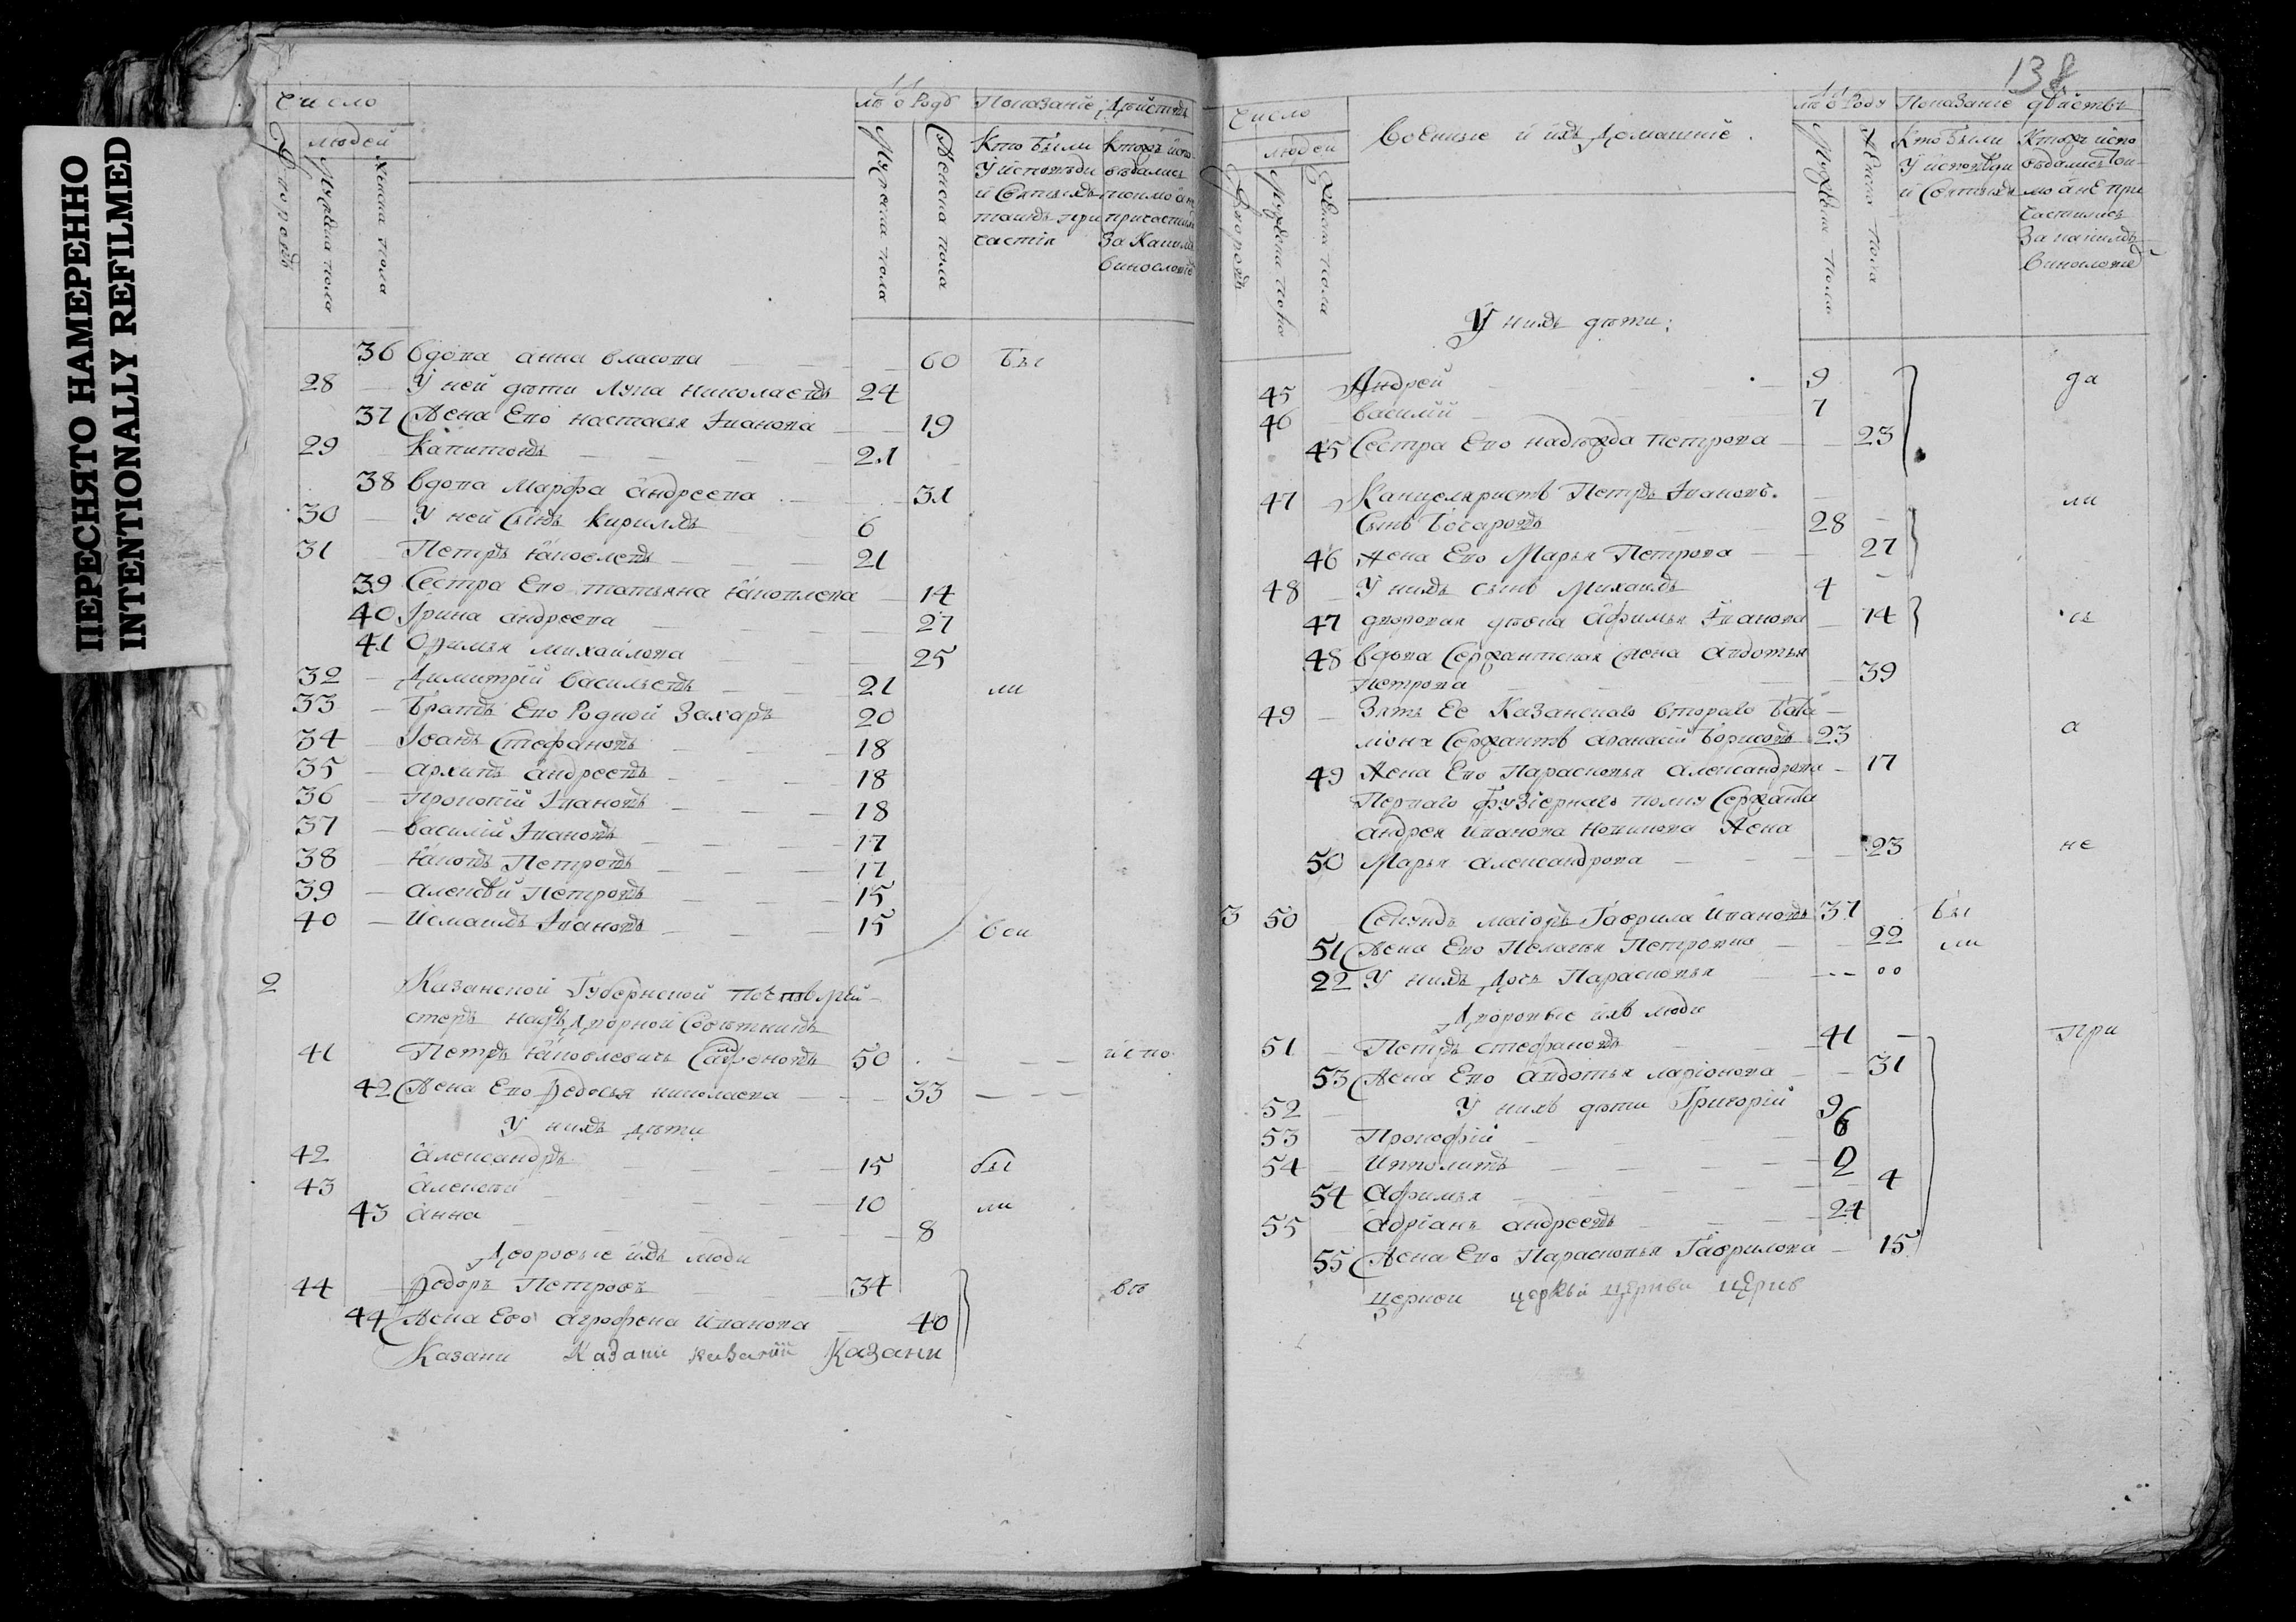 ПЕРЕСНЯТО НАМЕРЕННО
INTENTIONALLY REFILMED
Число
людей
Дворовъ
Мужеска пола
Женска пола
Лѣта о Роду
Мужеска пола
Женска пола
Показанїе дѣйствъ
Кто были
у исповѣди
и Святыхъ
таинъ при
частїя
Кто исповѣдались
токмо а не
причастились
За каким
винословїемъ
36 вдова анна власова 60 бы
28 У ней дѣти Лупа николаевъ 24
37 Жена Его настасья Iванова 19
29 Капитонъ 21
38 вдова марфа андреева 31
30 У ней сынъ Кириллъ 6
31 Петръ Яковлевъ 21
39 Сестра Его татьяна Яковлева 14
40 Iрина андреева 27
41 Офимья михайлова 25
32 Димитрїй васильевъ 21 ли
33 братъ Его Родной Захаръ 20
34 Iванъ Стефановъ 18
35 архипъ андреевъ 18
36 Прокопїй Iвановъ 18
37 василїй Iвановъ 17
38 Яковъ Петровъ 17
39 алексѣй Петровъ 15
40 Исмаилъ Iвановъ 15 вси
2 Казанской Губернской
стеръ надъ Дворной Совѣтникъ
41 Петръ Яковлевичь 50 испо
42 Жена Его Федосья николаева 33
У нихъ дѣти
42 александръ 15 бы
43 алексѣй 10 ли
43 анна 8
Дворовые ихъ люди
44 Федоръ Петровъ 34 вѣ
44 Жена Его агрофена иванова 40
Казани Казани казанїй Казани
138
Число
людей
Дворовъ
Мужеска пола
Женска пола
военные и ихъ домашнїе
Лѣта о Роду
Мужеска пола
Женска пола
Показанїе дѣйствъ
Кто были
у исповѣди
и Святыхъ
Кто испо
вѣдались ток
мо а не при
частились
За какимъ
винословїе
У нихъ дѣти:
45 Андрей 9 да
46 василїй 7
45 Сестра Его надежда петрова 23
47 Канцеляристъ Петръ Iвановъ ли
Сынъ 28
46 Жена Его Марья Петрова 27
48 У нихъ сынъ Михаилъ 4
47 дворовая Афимья Iванова 14 сь
48 вдова Сержантская жена авдотья
Петрова 39
49 Зять Ее Казанскаго втораго бата
лїона Сержантъ афанасїй борисовъ 23 а
49 Жена Его Парасковья александрова 17
Перваго фузїернаго полку Сержанта
андрея иванова новикова Жена
50 Марья александрова 23 не
3 50 Секундъ маїоръ Гаврила ивановъ 37 бы
51 Жена Его Пелагея Петровна 22 ли
22 У нихъ дочь Парасковья
Дворовые ихъ люди
51 Петръ стефановъ 41 при
53 Жена Его авдотья ларїонова 31
52 У нихъ дѣти Григорїй 9
53 Прокофїй 6
54 Ипполитъ 2
54 афимья 4
55 адрїанъ андреевъ 24
55 Жена Его Парасковья Гаврилова 15
церкви церкви церкви церкв